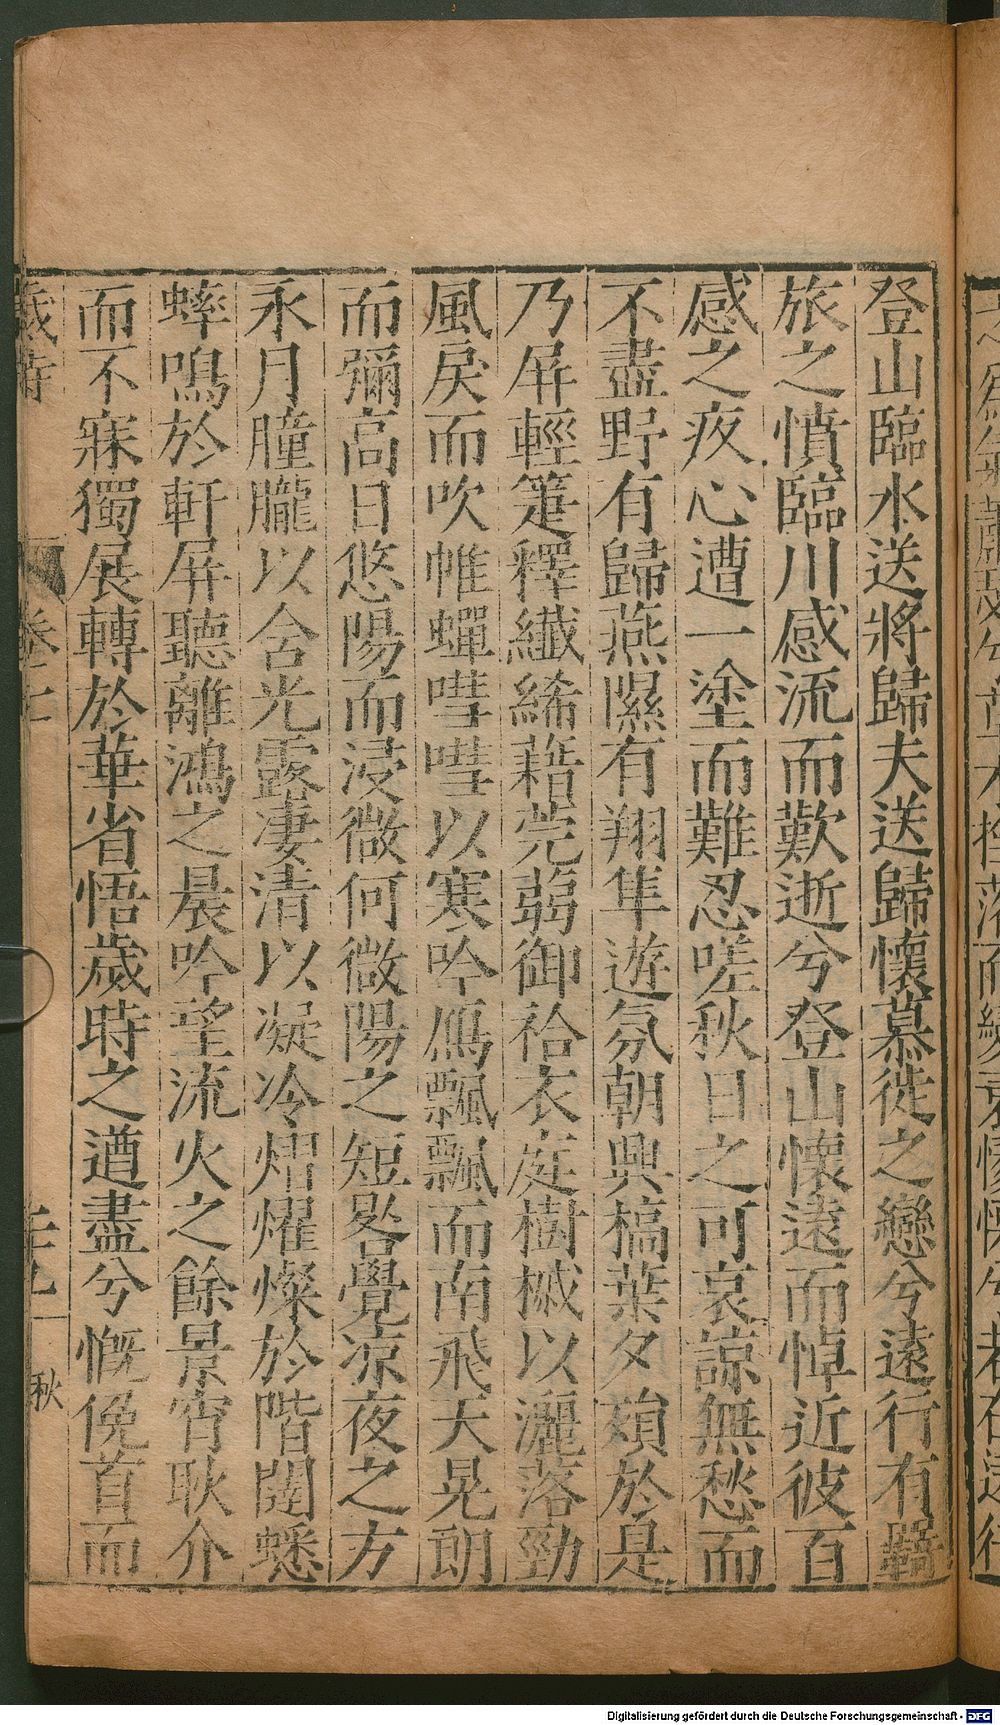 登山臨水送將歸夫送歸懷慕徙之戀兮遠行有羇
旅之憤臨川感流而歎逝兮登山懷遠而悼近彼百
感之疚心遭一塗而難忍嗟秋日之可哀諒無愁而
不盡野有歸燕隰有翔隼遊氛朝興槁葉夕殞於是
乃屏輕箑釋纖絺藉莞蒻御袷衣庭樹槭以灑落勁
風戾而吹帷蟬嘒嘒以寒吟鴈飄飄而南飛天晃朗
而彌高日悠陽而浸微何微陽之短晷覺凉夜之方
永月朣朧以含光露凄清以凝冷熠燿燦於階闥蟋
蟀鳴於軒屏聽離鴻之晨吟望流火之餘景宵耿介
而不寐獨展轉於華省悟歲時之遒盡兮慨俛首而
歲時
卷七
二九
秋
Digitalisierung gefördert durch die Deutsche Forschungsgemeinschaft - DFG